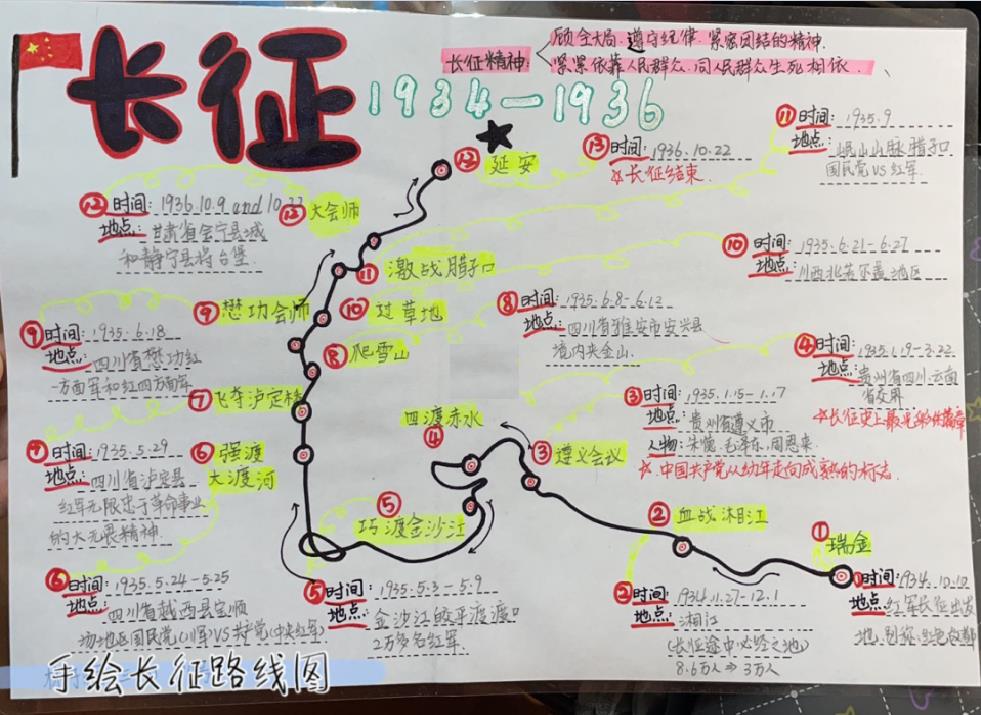 长征
1934—1936
长征精神:
顾全大局、遵守纪律、紧密团结的精神.
紧紧依靠人民群众,同人民群众生死相依.
⑪时间: 1935.9
地点: 岷山山脉腊子口
国民党VS红军.
⑬时间: 1936.10.22
☆长征结束.
⑫延安
⑫时间: 1936.10.9 and 10.22
地点: 甘肃省会宁县城
和静宁县将台堡.
⑫大会师
⑩时间: 1935.6.21-6.27
地点: 川西北若尔盖地区
⑪激战腊子口
⑨懋功会师
⑩过草地
⑧爬雪山
⑧时间: 1935.6.8-6.12
地点: 四川省雅安市
境内夹金山.
⑨时间: 1935.6.18
地点: 四川省懋功红
一方面军和红四方面军
④时间: 1935.1.19-3.22
地点: 贵州省四川云南
省交界
☆长征史上最光彩的篇章
③时间: 1935.1.15-1.17
地点: 贵州省遵义市
人物: 毛泽东,周恩来.
☆.中国共产党从幼年走向成熟的标志.
⑦飞夺泸定桥
四渡赤水
④
③遵义会议
⑦时间: 1935.5.29
地点: 四川省泸定县
红军无限忠于革命事业
的大无畏精神.
⑥强渡
大渡河
⑤
巧渡金沙江
②血战湘江
①
瑞金
⑥时间: 1935.5.24-5.25
地点: 四川省越西县安顺
场地区国民党(川军)VS共产党(中央红军)
⑤时间: 1935.5.3-5.9
地点: 金沙江皎平渡渡口
2万多名红军.
②时间: 1934.11.27-12.1
地点: 湘江
(长征途中必经之地)
8.6万人⇒3万人
①时间: 1934.10.10
地点: 红军长征出发
地,别称:红色故都
手绘长征路线图